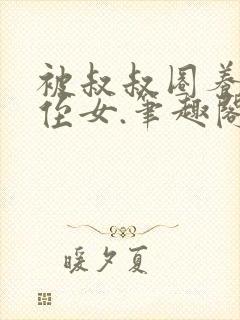 被叔叔圈养
侄女.笔趣阁
暖夕夏